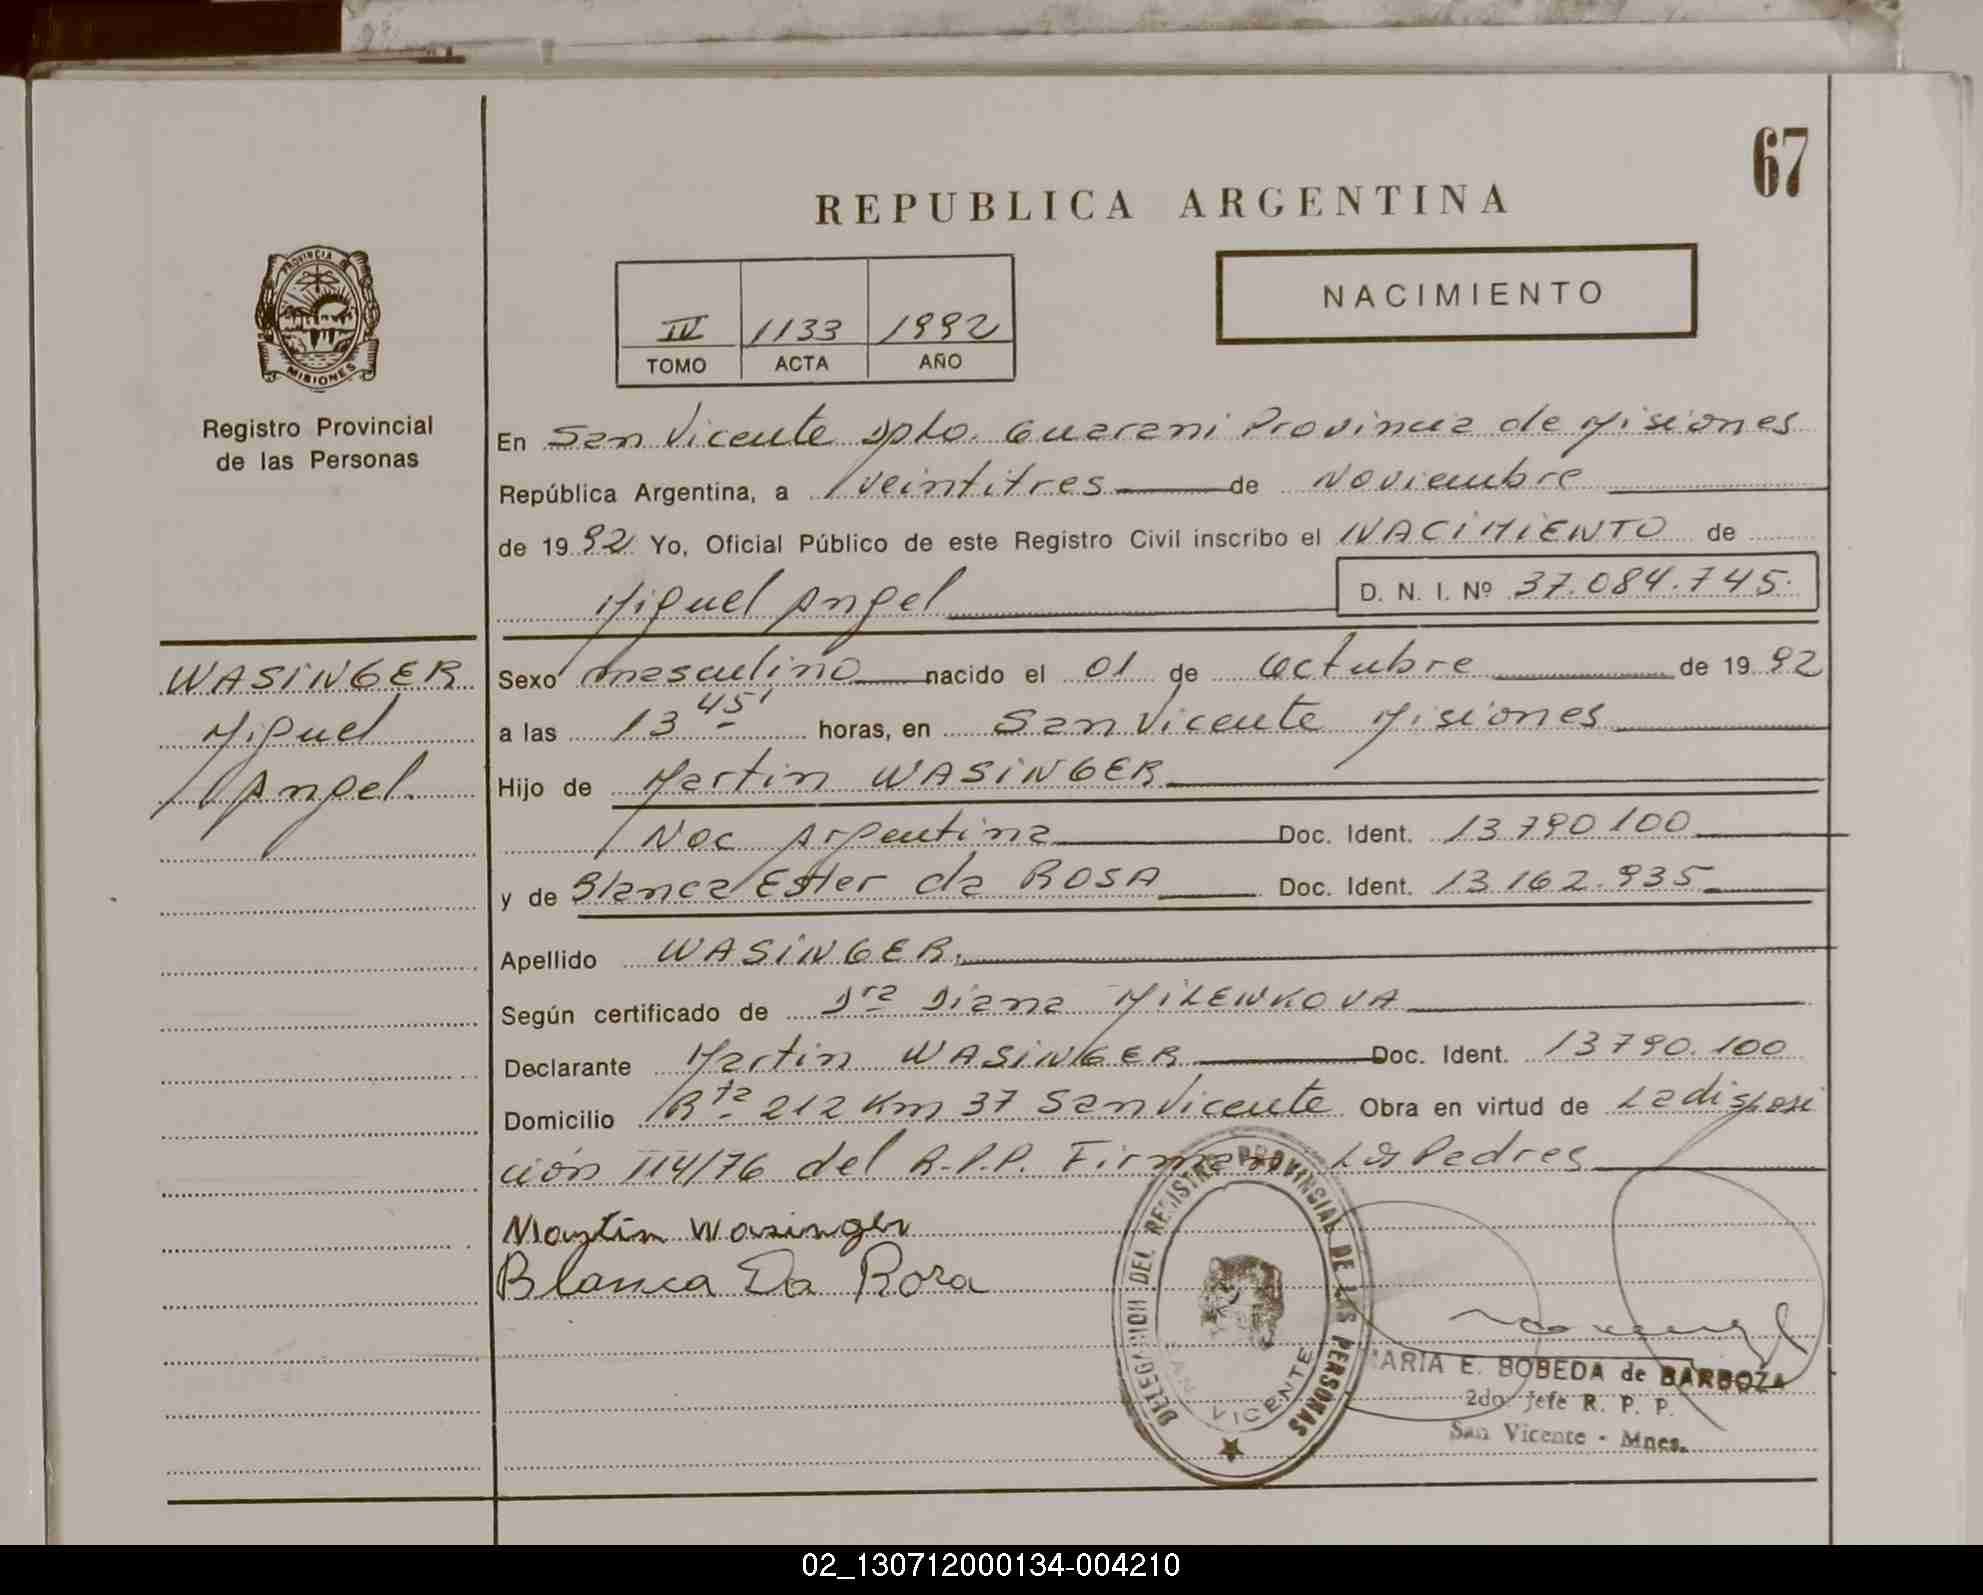 67
REPUBLICA ARGENTINA
PROVINCIA DE
MISIONES
Registro Provincial
de las Personas
IV 1133 1992
TOMO ACTA AÑO
NACIMIENTO
En San Vicente Dpto. Guarani Provincia de Misiones
República Argentina, a veintitres de Noviembre
de 1992 Yo, Oficial Público de este Registro Civil inscribo el NACIMIENTO de
Miguel Angel D. N. I. Nº 37.084.745
WASINGER
Miguel
Angel
Sexo masculino nacido el 01 de Octubre de 1992
a las 13 45' horas, en San Vicente Misiones
Hijo de Martin WASINGER
Nac Argentina Doc. Ident. 13790100
y de Blanca Ester da ROSA Doc. Ident. 13162.935
Apellido WASINGER.
Según certificado de Dra Diana MILENKOVA
Declarante Martin WASINGER Doc. Ident. 13790.100
Domicilio Rta 212 Km 37 San Vicente Obra en virtud de La disposi
ción 114/76 del R.P.P. Firman Los Padres
Martin Wasinger
Blanca Da Rosa
DELEGACION DEL REGISTRO PROVINCIAL DE LAS PERSONAS
SAN VICENTE
MARIA E. BOBEDA de BARBOZA
2do. Jefe R. P. P.
San Vicente - Mnes.
02_130712000134-004210